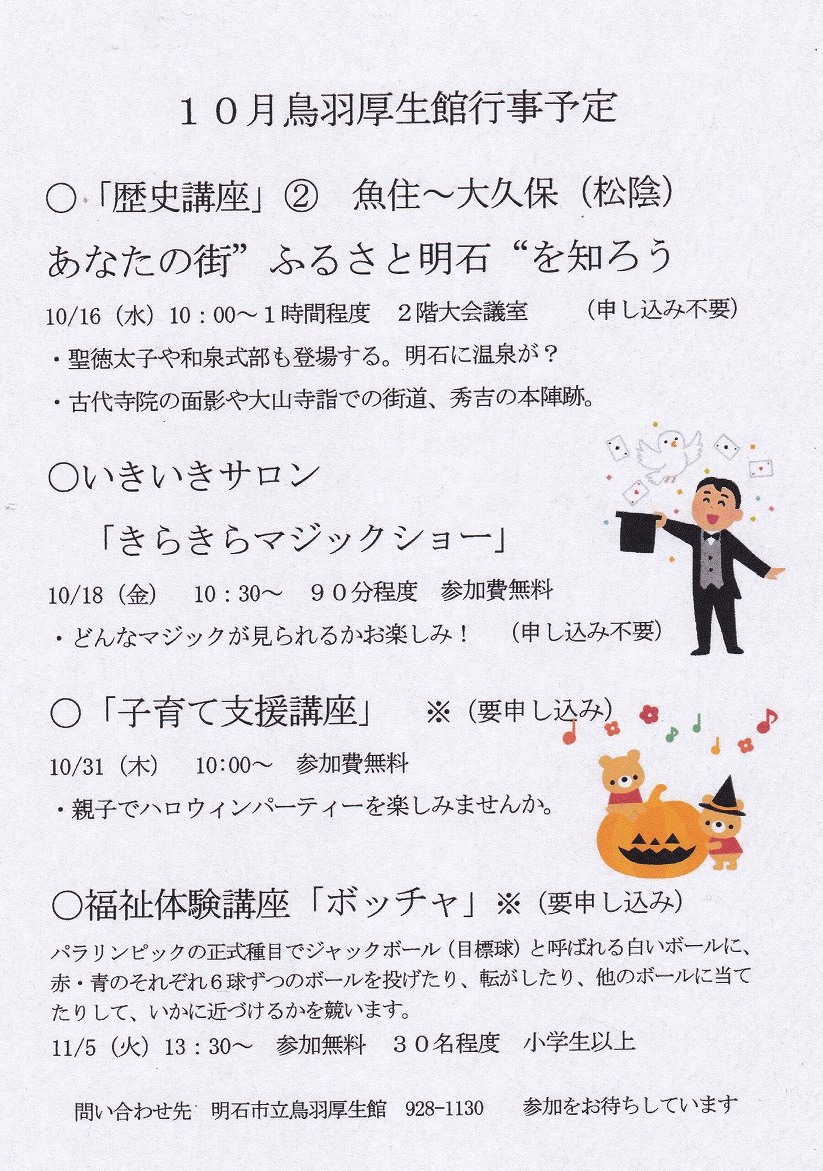 １０月鳥羽厚生館行事予定
○「歴史講座」②　魚住～大久保（松陰）
あなたの街”ふるさと明石“を知ろう
10/16（水）10：00～１時間程度　２階大会議室　　（申し込み不要）
・聖徳太子や和泉式部も登場する。明石に温泉が？
・古代寺院の面影や大山寺詣での街道、秀吉の本陣跡。
○いきいきサロン
「きらきらマジックショー」
10/18（金）　10：30～　９０分程度　参加費無料
・どんなマジックが見られるかお楽しみ！　（申し込み不要）
○「子育て支援講座」　※（要申し込み）
10/31（木）　10:00～　参加費無料
・親子でハロウィンパーティーを楽しみませんか。
○福祉体験講座「ボッチャ」※（要申し込み）
パラリンピックの正式種目でジャックボール（目標球）と呼ばれる白いボールに、
赤・青のそれぞれ６球ずつのボールを投げたり、転がしたり、他のボールに当て
たりして、いかに近づけるかを競います。
11/5（火）13：30～　参加無料　３０名程度　小学生以上
問い合わせ先　明石市立鳥羽厚生館　928-1130　　参加をお待ちしています